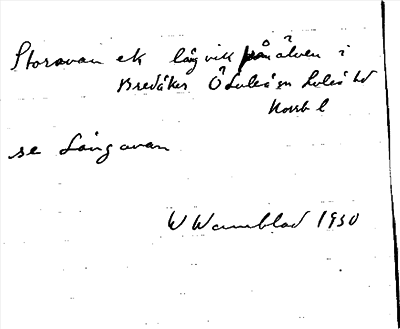 Storavan ek lång vik från älven i
Bredåker ÖLuleå sn Luleå td
Norrb l
se Långavan
W Wannblad 1930